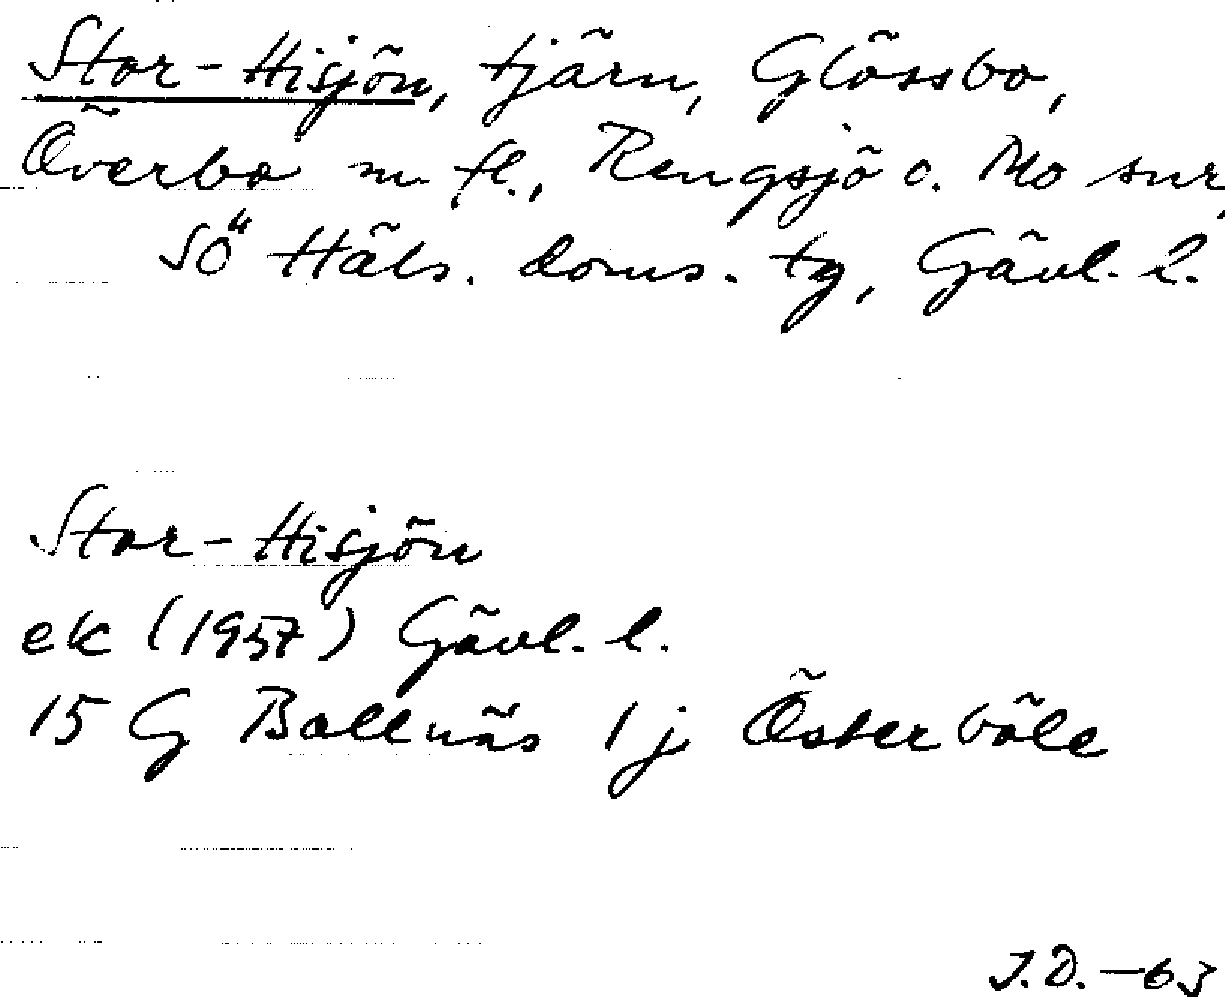 Stor-Hisjön, tjärn, Glössbo,
Överbo m fl., Rengsjö o. Mo snr,
SÖ Häls. doms. tg, Gävl. l.
Stor-Hisjön
ek (1957) Gävl. l.
15 G Bollnäs 1j Österböle
J.D. -63